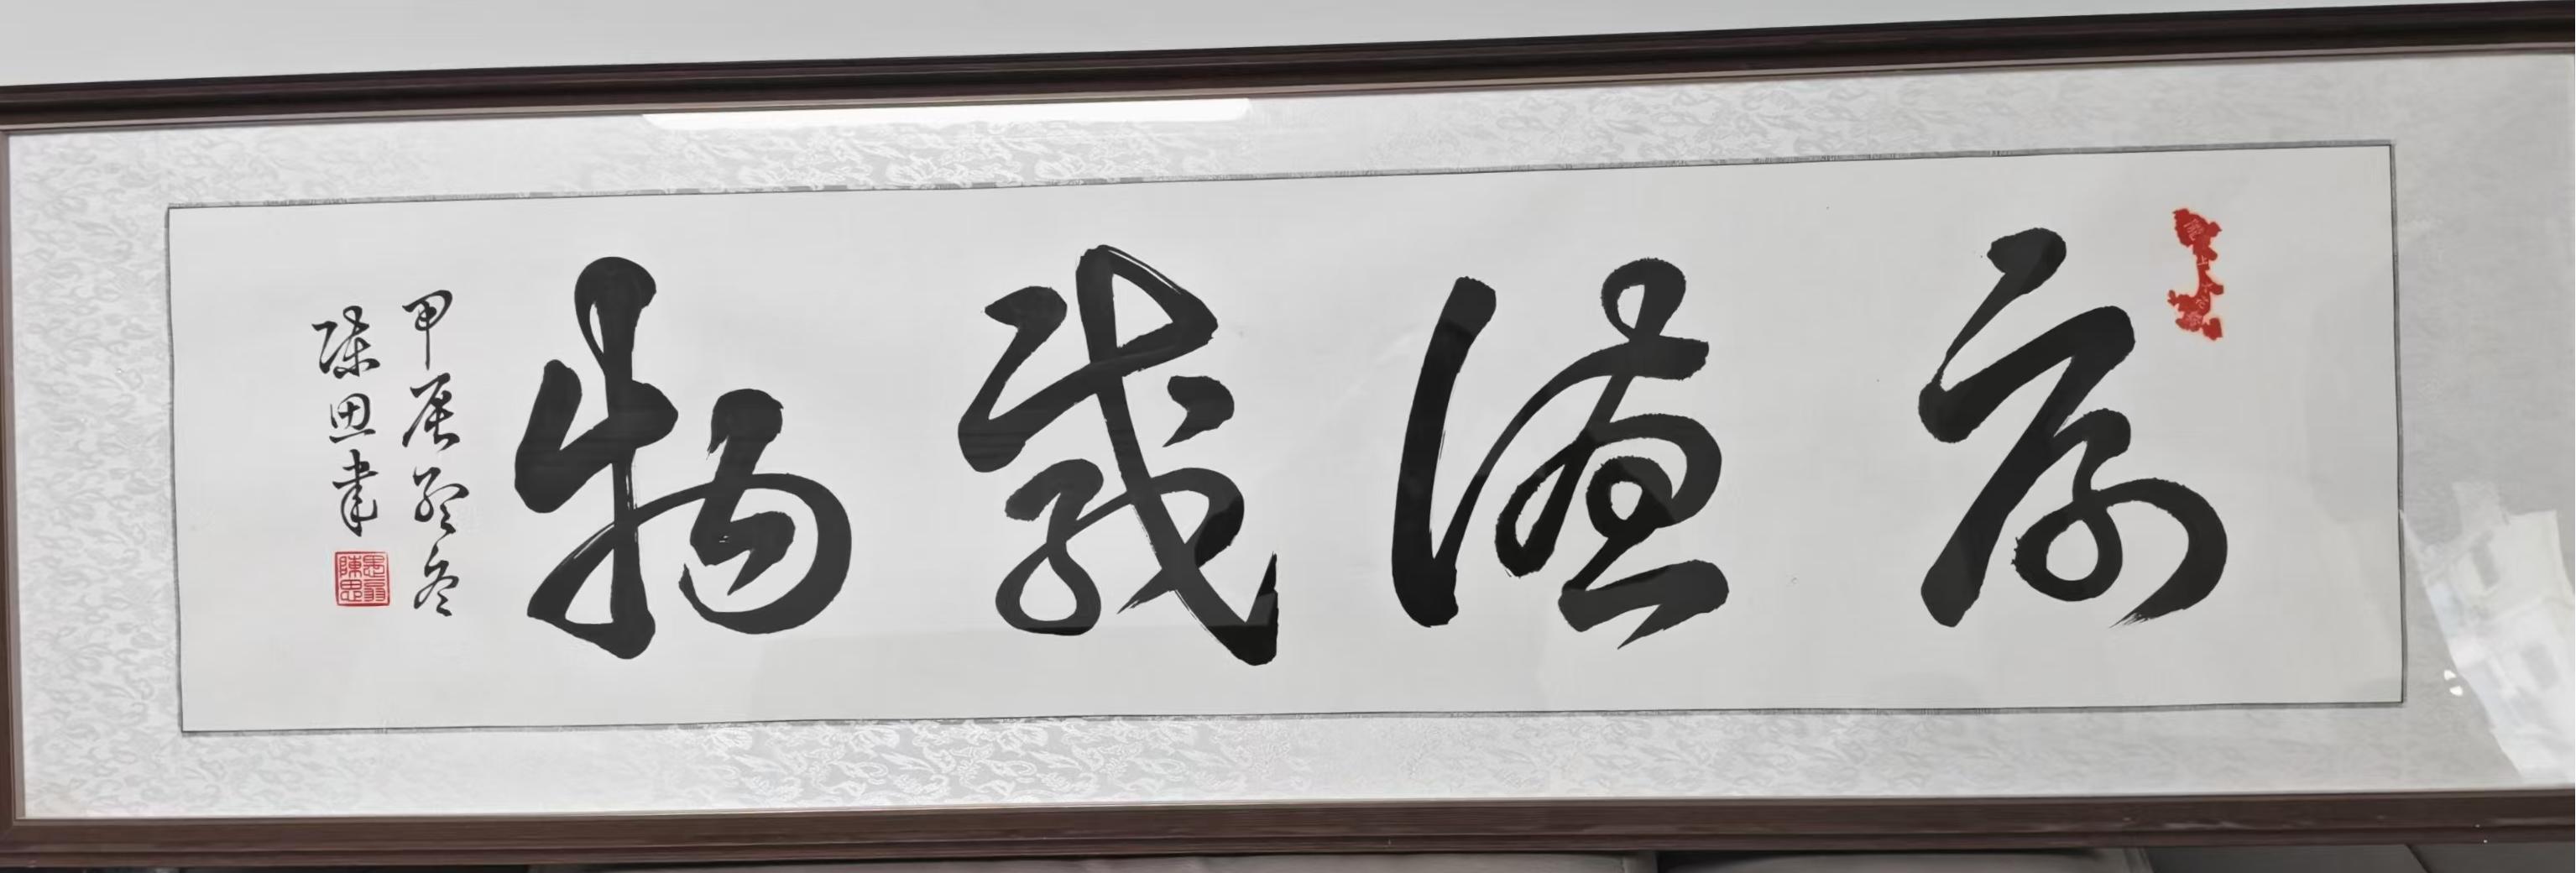 厚德載物
甲辰孟冬
陳思書
陳思